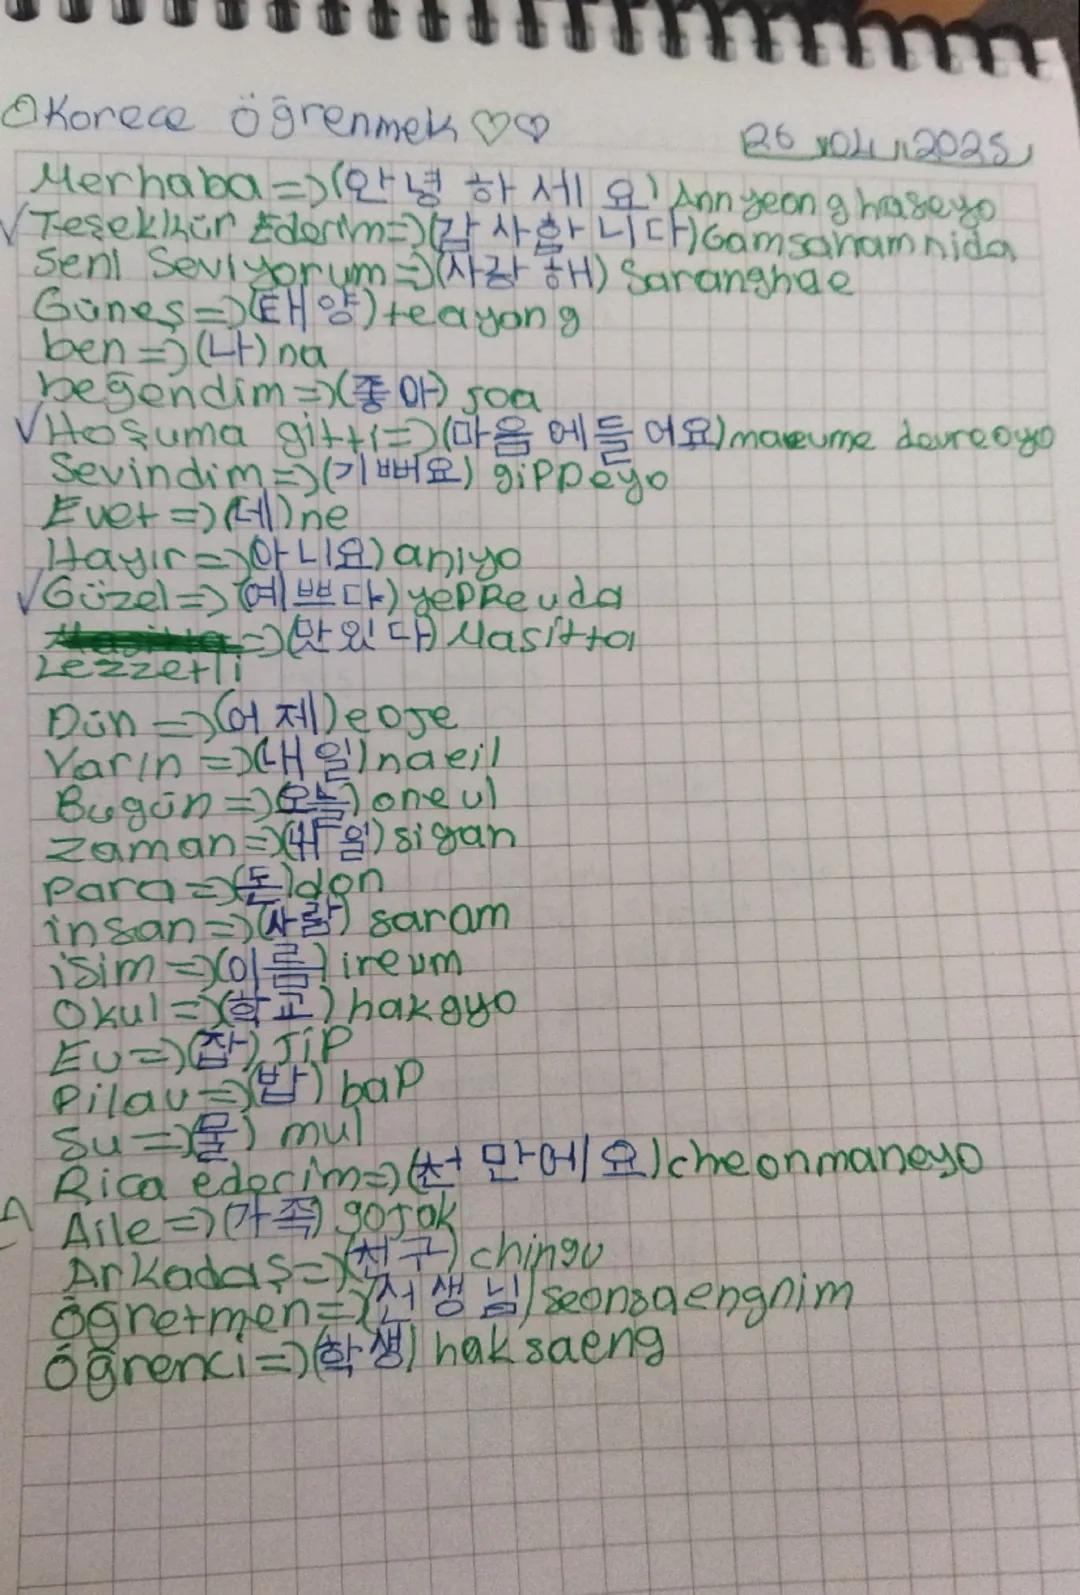 Korece öğrenmek ♡♡
26.04.2025
Merhaba => (안녕 하 세 요) Annyeong haseyo
√ Teşekkür Ederim => (감 사합 니다) Gamsahamnida
Seni Seviyorum => (사랑 해) Saranghae
Güneş => (태양) teayang
ben => (나) na
beğendim => (좋 아) joa
√ Hoşuma gitti => (마음 에들 어요) maeume
Sevindim => (기뻐요) gippeyo
Evet => (네) ne
Hayır => 아니요) aniyo
√ Güzel => (예쁘다) yeppeuda
=> (맛 있 다) Masitta
Lezzetli
Dün => (어 제) eoje
Yarın => (내 일) naeil
Bugün => (오늘) oneul
Zaman => sigan
para => (돈) don
insan => (사람) saram
isim => (이름) ireum
Okul => (학교) hakgyo
Ev => (잡) Jip
Pilav => (밥) bap
Su => (물) mul
Rica ederim => (천 만에 요) cheonmaneyo
Aile => (가 족) gojok
Arkadaş => (친구) chingu
Öğretmen => (선 생 님) seonsaengnim
Öğrenci => (학생) haksaeng